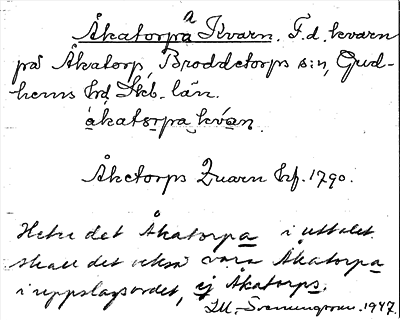 Åkatorpa Kvarn. F.d. kvarn
på Åkatorp, Broddetorps s:n, Gud-
hems hd, Skb. län.
åkatorpa kvan.
Åketorps Quarn Krf. 1790.
Heter det Åkatorpa i uttalet
skall det också vara Åkatorpa
i uppslagsordet, ej Åkatorps.
1947.